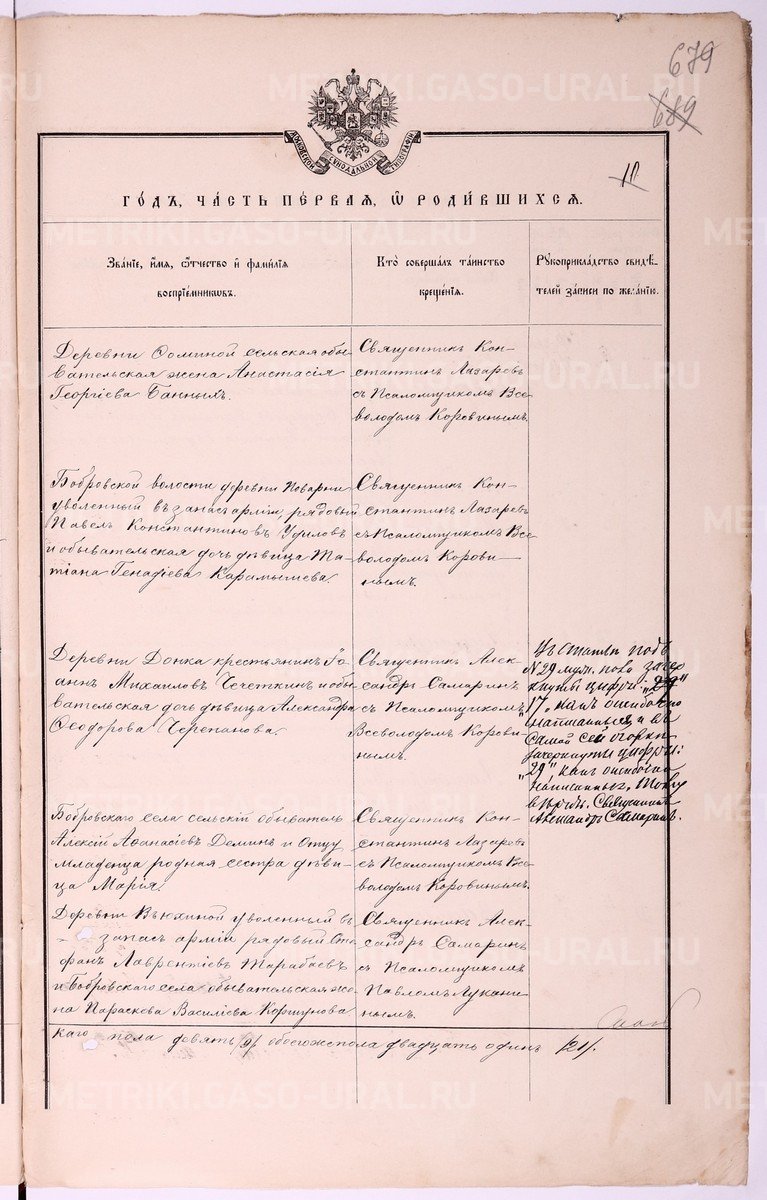 679
689
МОСКОВСКОЙ СѴНОДАЛЬНОЙ ТИПОГРАФІИ
10
ГО́ДЪ, ЧА́СТЬ ПЕ́РВАЯ, Ѿ РОДИ́ВШИХСЯ.
Зва́ніе, и́мя, ѻ҆́тчество и҆ фами́лія
воспріе́мниковъ.
Кто̀ соверша́лъ та́инство
креще́нія.
Рꙋкоприкла́дство свидѣ́-
телей за́писи по жела́нію.
Деревни Соминой сельская обы
вательская жена Анастасія
Георгіева Банныхъ.
Священникъ Кон-
стантинъ Лазаревъ
съ Псаломщикомъ Все
володомъ Коровинымъ.
Бобровской волости деревни Поварни
уволенный въ запасъ арміи, рядовый
Павелъ Константиновъ Удиловъ
и обывательская дочь дѣвица Та-
тіана Генадіева Карамышева.
Священникъ Кон-
стантинъ Лазаревъ
съ Псаломщикомъ Все
володомъ Корови-
нымъ.
Деревни Донка крестьянинъ Іо-
аннъ Михаиловъ Чечеткинъ и обы-
вательская дочь дѣвица Александра
Ѳеодорова Черепанова.
Священникъ Алек-
сандръ Самаринъ
съ Псаломщикомъ
Всеволодомъ Корови-
нымъ.
Въ статьи подъ
№ 29 муж. пола зачер
кнуты цифры „29"
17, какъ ошибочно
написанныя и въ
самой сей
зачеркнуты цифры:
„29" какъ ошибочно
написанныя,
вѣрно. Священникъ
Александръ Самаринъ.
Бобровскаго села сельскій обыватель
Алексій Аѳанасіевъ Деминъ и Отцу
младенца родная сестра дѣви-
ца Марія.
Священникъ Кон-
стантинъ Лазаревъ
съ Псаломщикомъ Все
володомъ Коровинымъ.
Деревни Вьюхиной уволенный въ
запасъ арміи рядовый Сте
фанъ Лаврентіевъ Тарабаевъ
и Бобровскаго села обывательская же-
на Параскева Василіева Коршунова
Священникъ Алек-
сандръ Самаринъ
съ Псаломщикомъ
Павломъ Лукани-
нымъ.
каго пола девять /9/ обоего же пола двадцать одинъ /21/.
METRIKI.GASO-URAL.RU